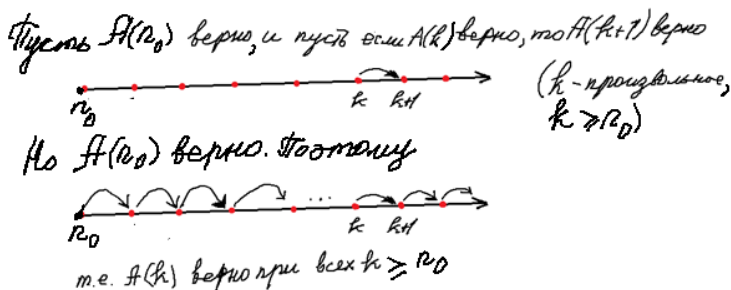 Пусть A(n₀) верно, и пусть если A(k) верно, то A(k+1) верно
(k - произвольное,
k ⩾ n₀)
n₀ k k+1
Но A(n₀) верно. Поэтому
...
n₀ k k+1
т.е. A(k) верно при всех k ⩾ n₀